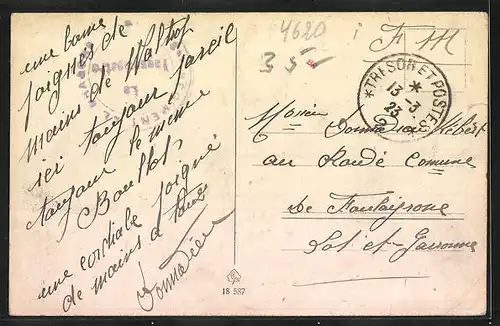 une bonne
poignés de
mains de Walhof
ici toujour pareil
toujour le même
Boullot
une cordiale poigné
de mains a tous
Donnadieu
4620
35
F M
* TRESOR ET POSTES *
13 -3
23
Monsieur
Donnadieu Hébert
au Rondé Comune
de Fontayrone
Lot et Garonne
18 587